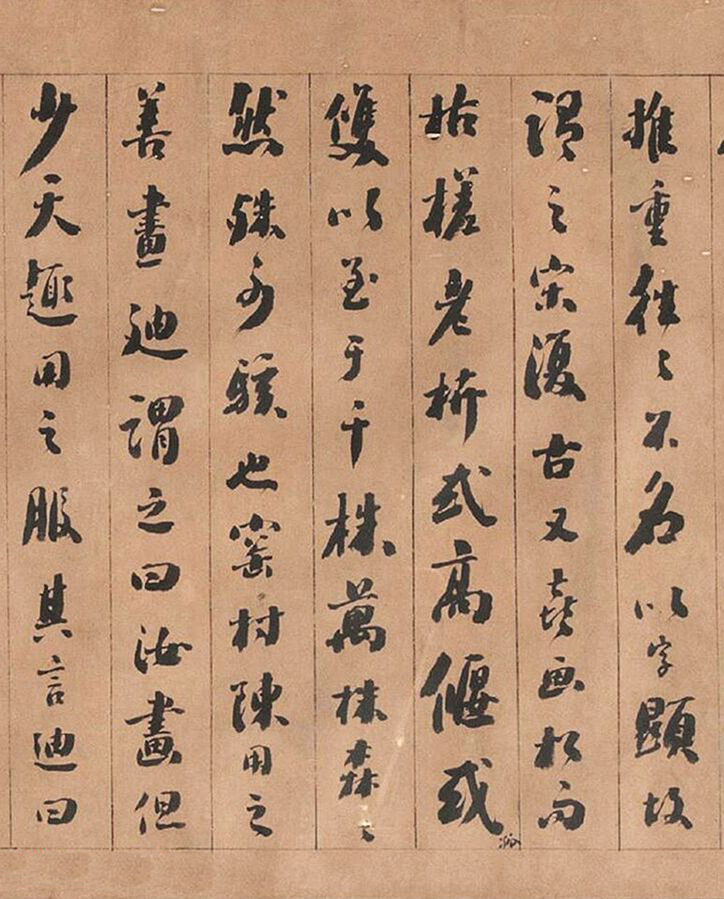 推重往〻不名以字顯故
謂之宋復古又喜画松而
枯槎老枿或高偃或孤
雙以至于千株萬株森〻
然殊可駭也窯村陳用之
善畫迪謂之曰汝畫但
少天趣用之服其言迪曰